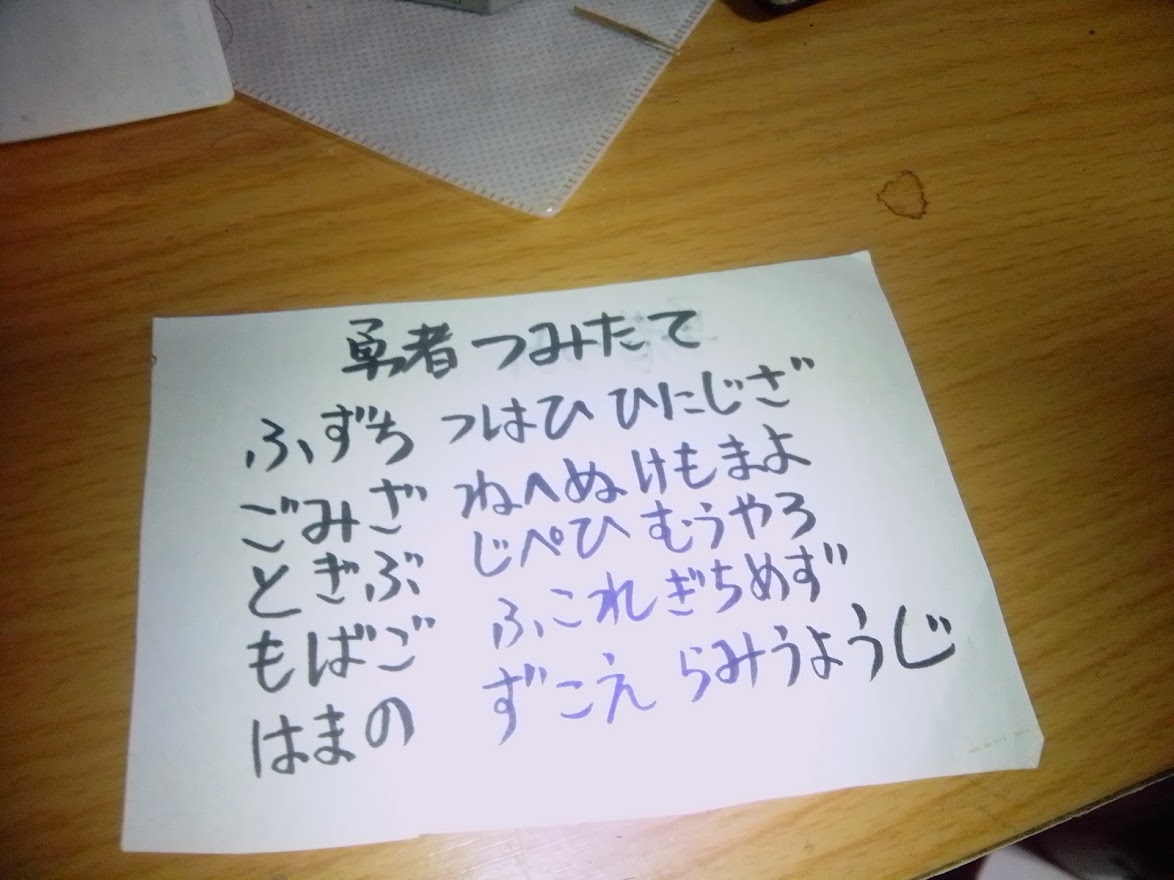 勇者 つみたて
ふずち つはひ ひにじざ
ごみざ ねへぬ けもまよ
とぎぶ じぺひ むうやろ
もばご ふこれ ぎちめず
はまの ずこえ らみうようじ